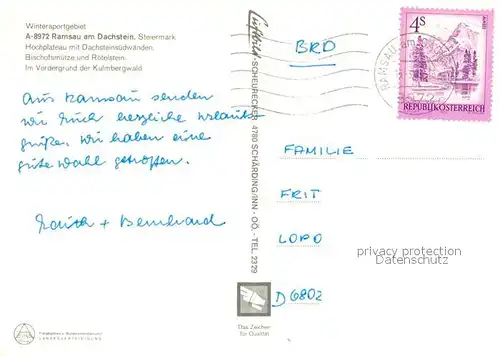 Wintersportgebiet
A-8972 Ramsau am Dachstein, Steiermark
Hochplateau mit Dachsteinsüdwänden,
Bischofsmütze und Rötelstein.
Im Vordergrund der Kulmbergwald
Aus Ramsau senden
wir Euch herzliche Urlaubs
grüße, wir haben eine
gute Wahl getroffen.
+ Bernhard
Luftbild SCHEURECKER, 4780 SCHÄRDING/INN - OÖ. - TEL. 2329
BRD
4S
REPUBLIK ÖSTERREICH
RAMSAU am
FAMILIE
FRIT
LOPO
D 6802
privacy protection
Datenschutz
Das Zeichen
für Qualität